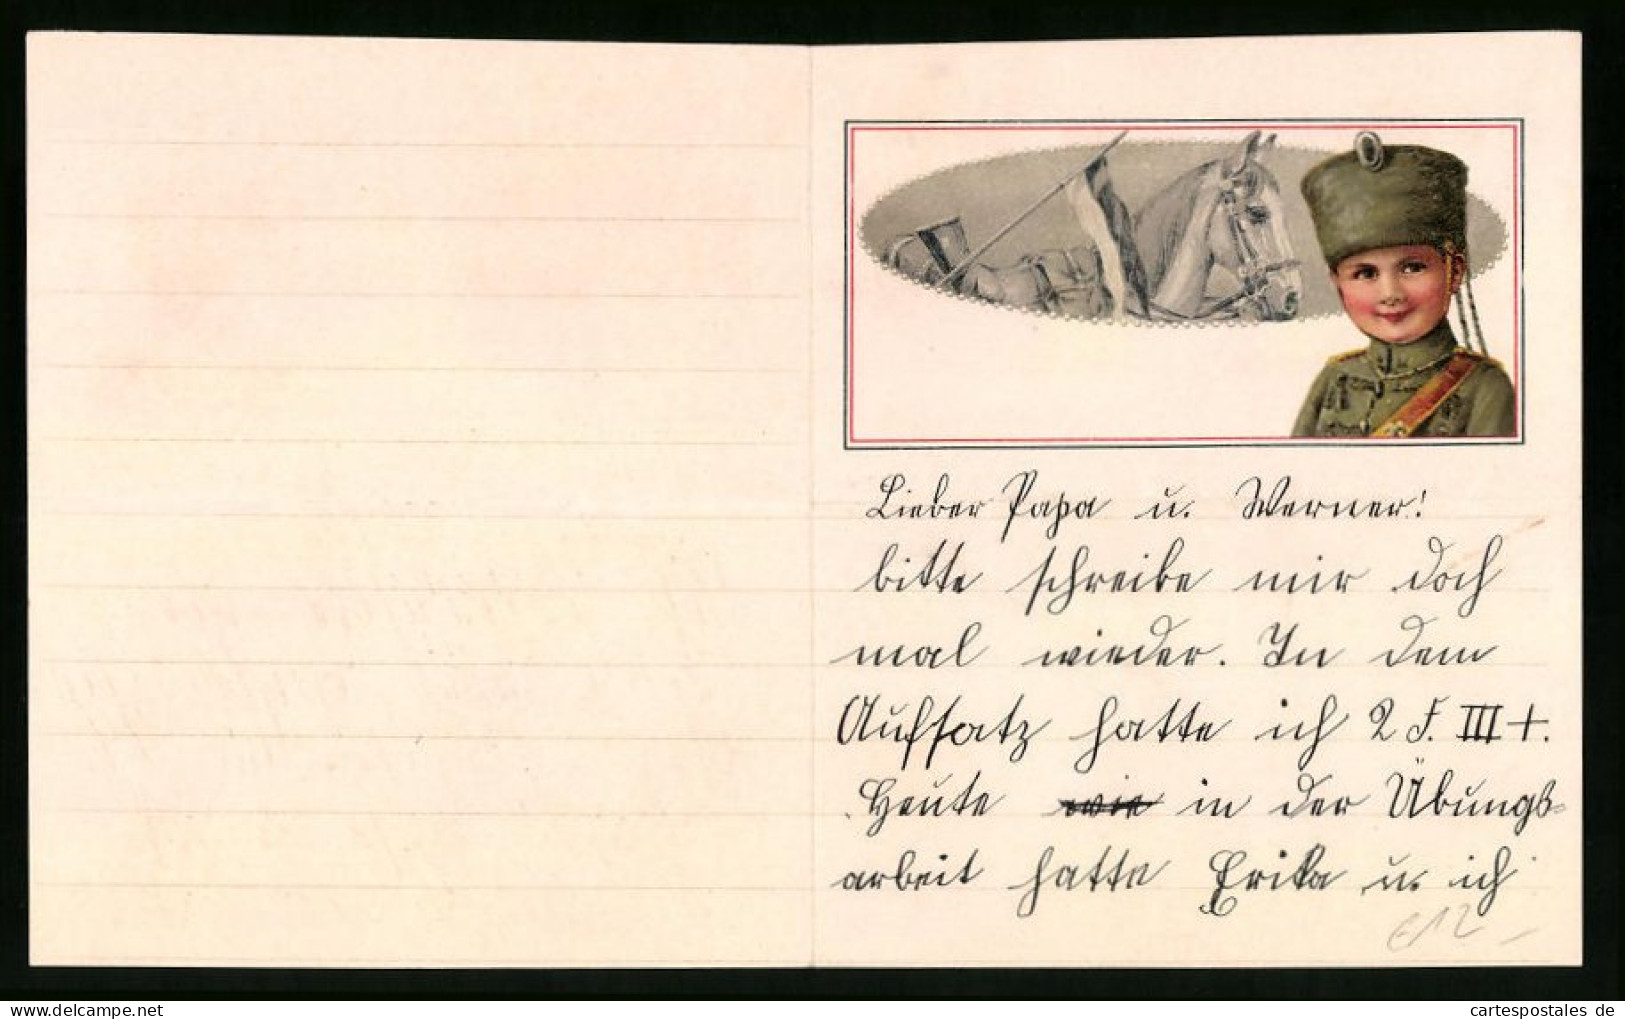 Lieber Papa u. Werner!
bitte schreibe mir doch
mal wieder. In dem
Aufsatz hatte ich 2 F. III+.
Heute wie in der Übungs-
arbeit hatte Erika u. ich
€12,-
cartespostales de